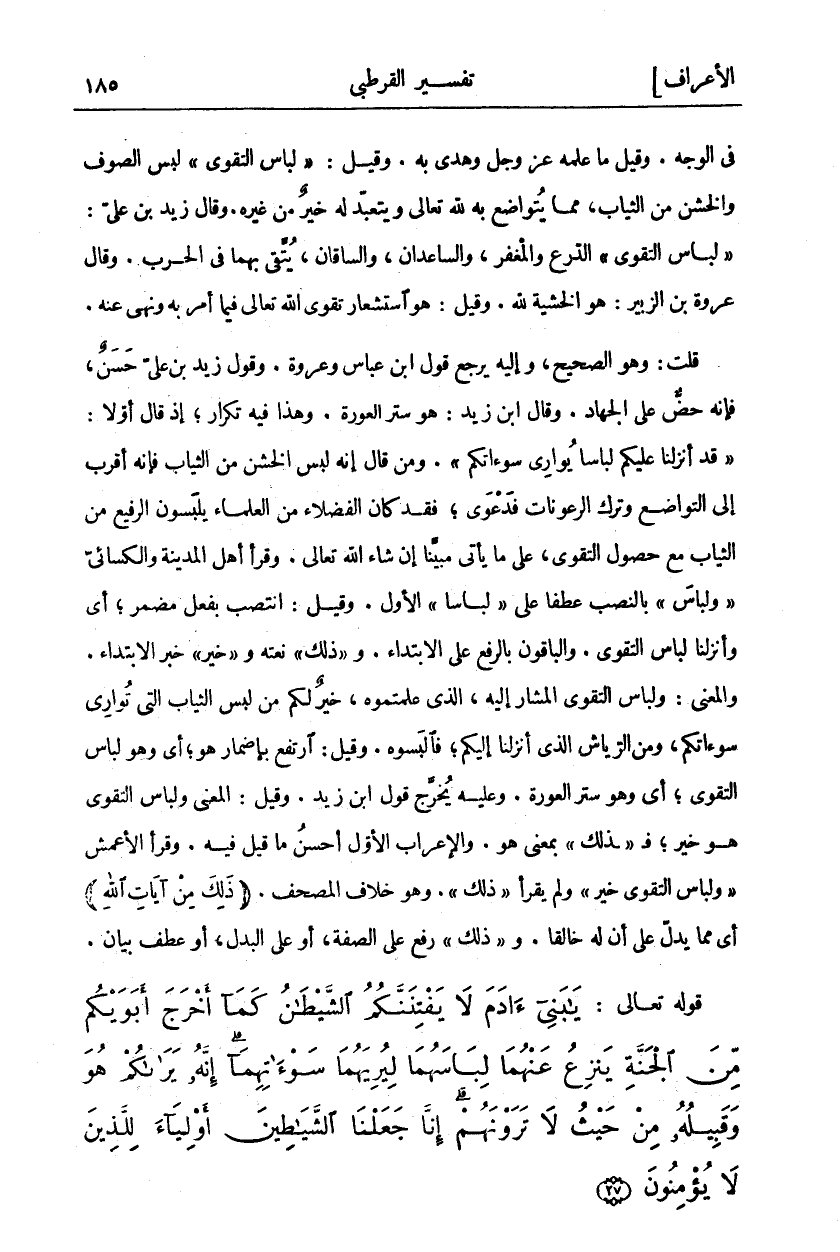 الأعراف] تفسير القرطبي ١٨٥
فى الوجه . وقيل ما علمه عز وجل وهدى به . وقيل : « لباس التقوى » لبس الصوف
والخشن من الثياب، مما يُتواضع به لله تعالى ويتعبّد له خيرٌ من غيره. وقال زيد بن علىّ :
« لباس التقوى » الدّرع والمغفر ، والساعدان ، والساقان ، يُتَّقى بهما فى الحرب . وقال
عروة بن الزبير : هو الخشية لله . وقيل : هو ٱستشعار تقوى الله تعالى فيما أمر به ونهى عنه .
قلت : وهو الصحيح، وإليه يرجع قول ابن عباس وعروة . وقول زيد بن علىّ حَسَنٌ،
فإنه حضٌّ على الجهاد . وقال ابن زيد : هو ستر العورة . وهذا فيه تكرار ؛ إذ قال أوّلا :
« قد أنزلنا عليكم لباسا يُوارى سوءاتكم » . ومن قال إنه لبس الخشن من الثياب فإنه أقرب
إلى التواضع وترك الرعونات فدَعْوَى ؛ فقد كان الفضلاء من العلماء يلبَسون الرفيع من
الثياب مع حصول التقوى، على ما يأتى مبيَّنا إن شاء الله تعالى . وقرأ أهل المدينة والكسائىّ
« ولباسَ » بالنصب عطفا على « لباسا » الأول . وقيل : انتصب بفعل مضمر ؛ أى
وأنزلنا لباس التقوى . والباقون بالرفع على الابتداء . و «ذلك» نعته و «خير» خبر الابتداء .
والمعنى : ولباس التقوى المشار إليه ، الذى علمتموه ، خيرٌ لكم من لبس الثياب التى تُوارى
سوءاتكم، ومن الرّياش الذى أنزلنا إليكم؛ فٱلبَسوه . وقيل : ٱرتفع بإضمار هو؛ أى وهو لباس
التقوى ؛ أى وهو ستر العورة . وعليه يُخرَّج قول ابن زيد . وقيل : المعنى ولباس التقوى
هو خير ؛ فـ « ذلك » بمعنى هو . والإعراب الأوّل أحسنُ ما قيل فيه . وقرأ الأعمش
« ولباس التقوى خير » ولم يقرأ « ذلك » . وهو خلاف المصحف . ﴿ ذَلِكَ مِنْ آيَاتِ ٱللهِ ﴾
أى مما يدلّ على أن له خالقا . و « ذلك » رفع على الصفة، أو على البدل، أو عطف بيان .
قوله تعالى : يَـٰبَنِىٓ ءَادَمَ لَا يَفْتِنَنَّكُمُ ٱلشَّيْطَـٰنُ كَمَآ أَخْرَجَ أَبَوَيْكُم
مِّنَ ٱلْجَنَّةِ يَنزِعُ عَنْهُمَا لِبَاسَهُمَا لِيُرِيَهُمَا سَوْءَٰتِهِمَآ ۗ إِنَّهُۥ يَرَىٰكُمْ هُوَ
وَقَبِيلُهُۥ مِنْ حَيْثُ لَا تَرَوْنَهُمْ ۗ إِنَّا جَعَلْنَا ٱلشَّيَـٰطِينَ أَوْلِيَآءَ لِلَّذِينَ
لَا يُؤْمِنُونَ ٢٧